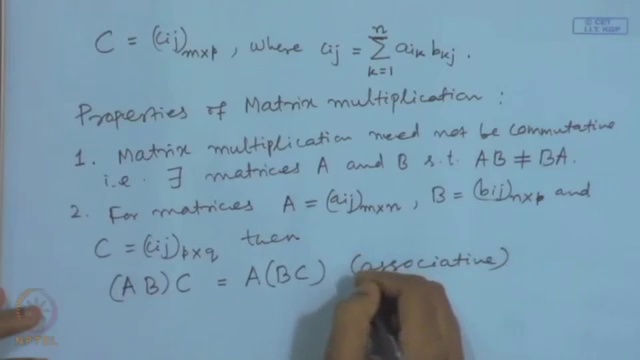 © CET
I.I.T. KGP
C = (cij)m×p, where cij = n∑k=1 aik bkj.
Properties of Matrix multiplication:
1. Matrix multiplication need not be commutative
i.e. ∃ matrices A and B s.t. AB ≠ BA.
2. For matrices A = (aij)m×n, B = (bij)n×p and
C = (cij)p×q then
(AB)C = A(BC) (associative)
NPTEL